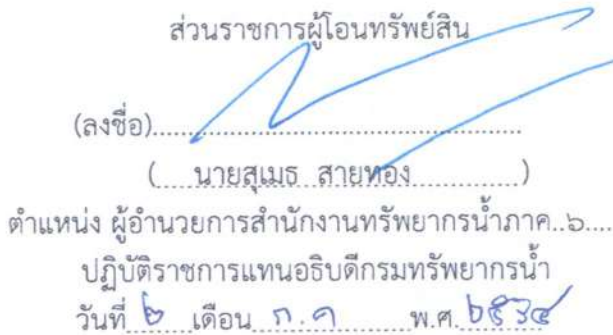 ส่วนราชการผู้โอนทรัพย์สิน
(ลงชื่อ)
( นายสุเมธ สายทอง )
ตำแหน่ง ผู้อำนวยการสำนักงานทรัพยากรน้ำภาค..๖....
ปฏิบัติราชการแทนอธิบดีกรมทรัพยากรน้ำ
วันที่ ๒ เดือน ก.ค พ.ศ.